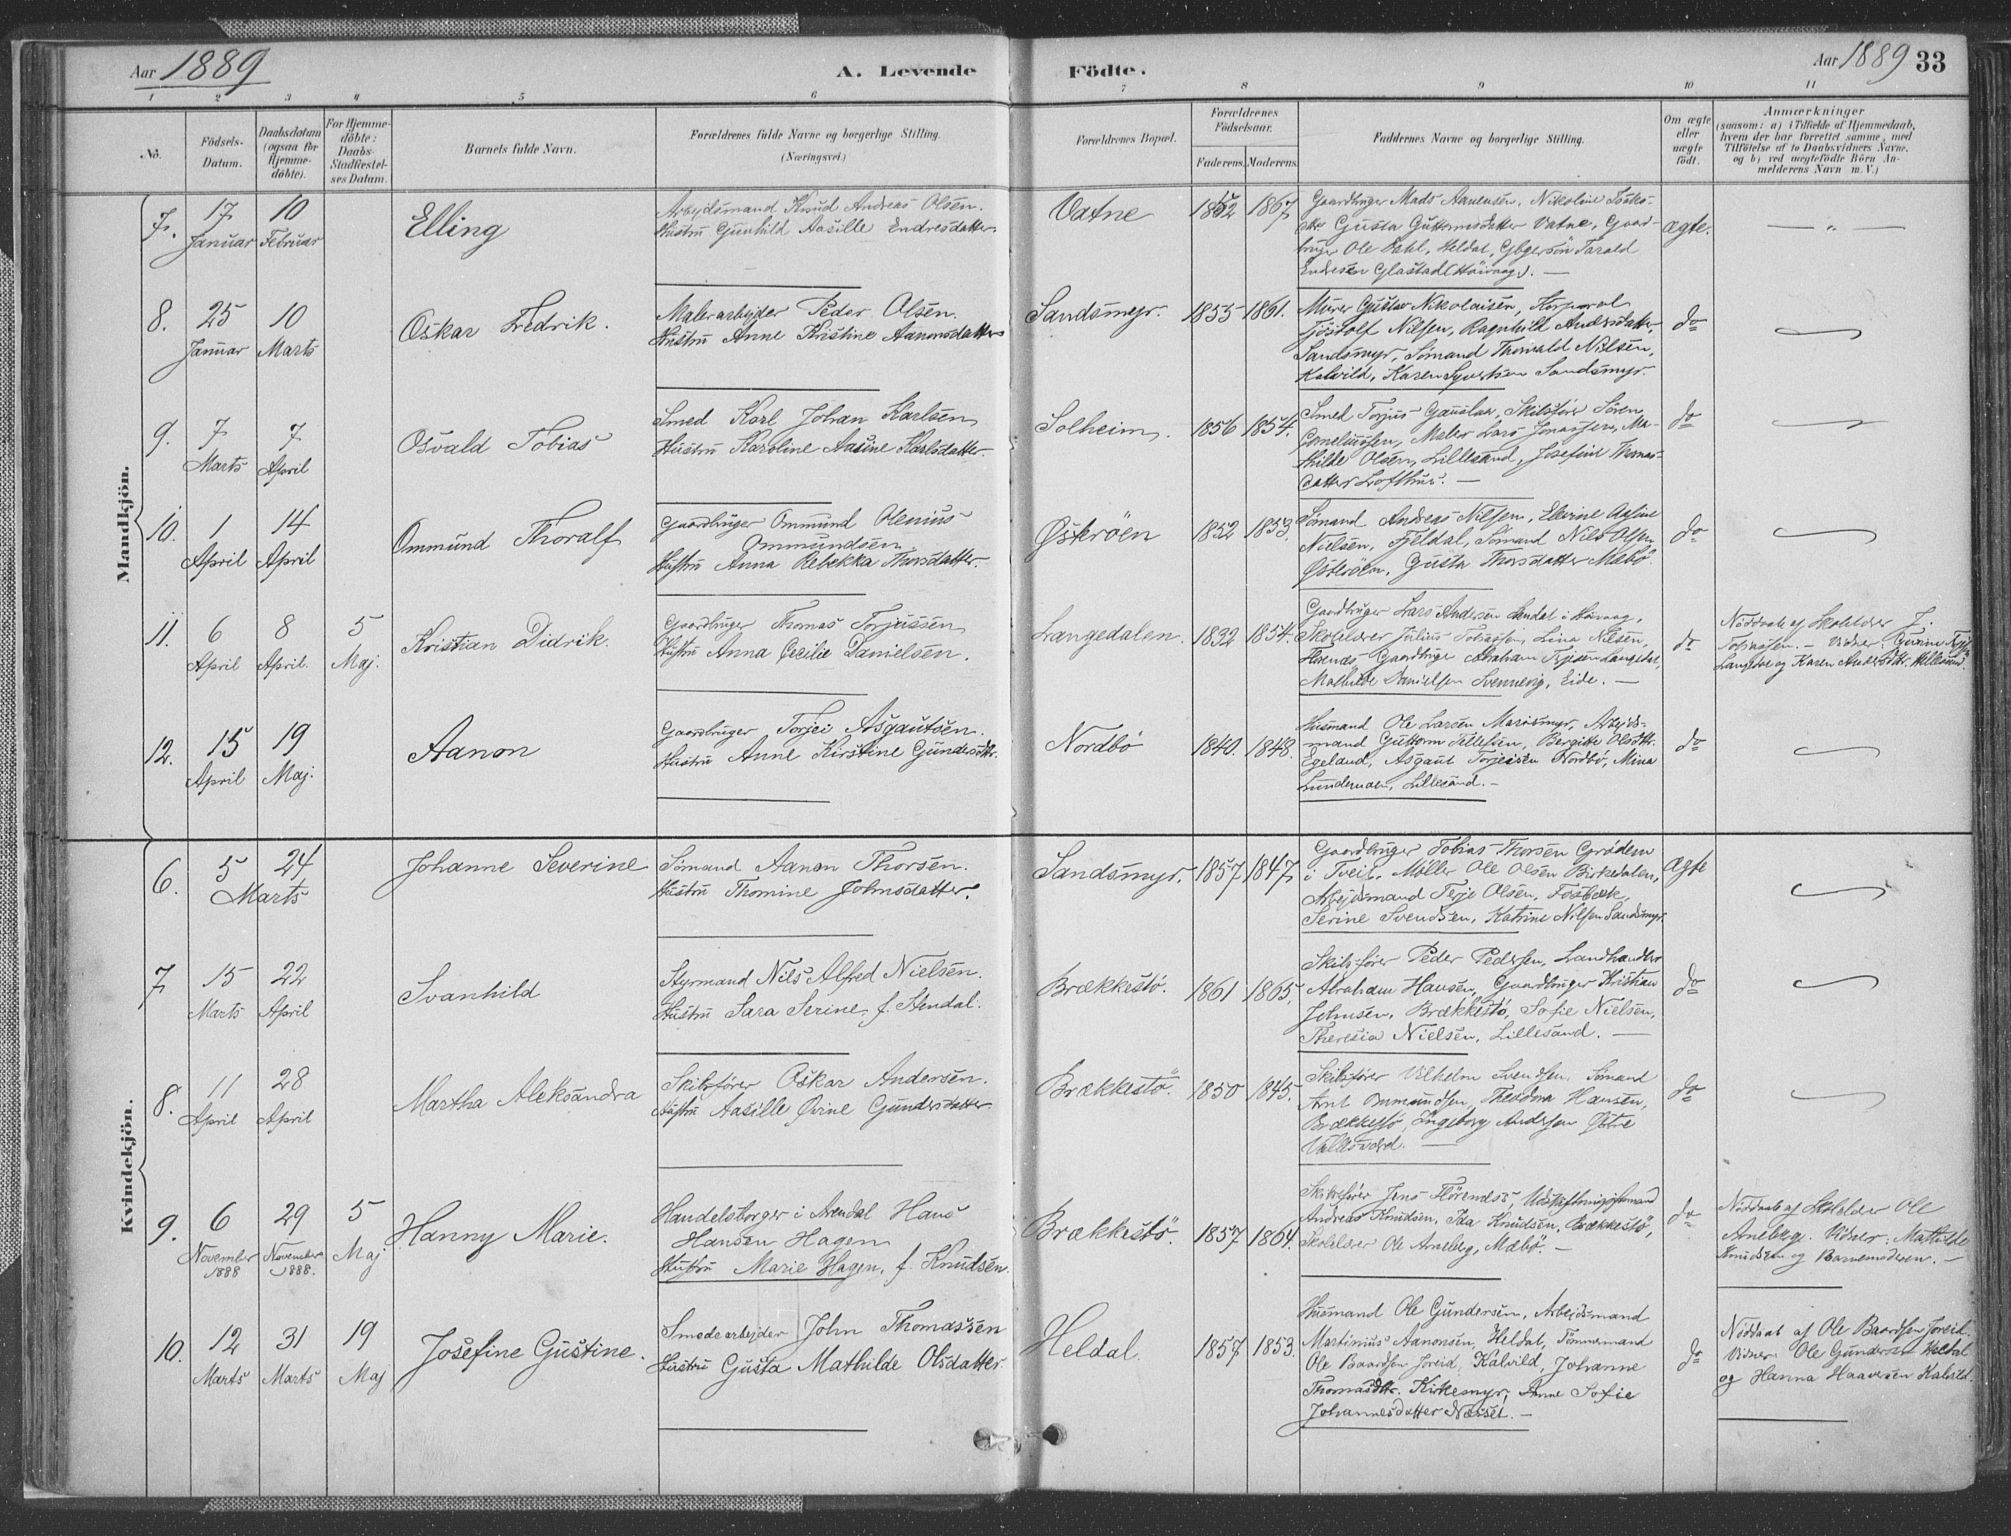 Aar 1889
A. Levende Födte.
Aar 1889 33
1 2 3 4 5 6 7 8 9 10 11
No.
Födsels-
Datum.
Daabsdatum
(ogsaa for
Hjemme-
döbte).
For Hjemme-
döbte:
Daabs-
Stadfæstel-
ses Datum.
Barnets fulde Navn.
Forældrenes fulde Navne og borgerlige Stilling.
(Næringsvei.)
Forældrenes Bopæl.
Forældrenes
Födselsaar.
Faderens. Moderens.
Faddernes Navne og borgerlige Stilling.
Om ægte
eller
uægte
født.
Anmærkninger
(saasom: a) i Tilfælde af Hjemmedaab,
hvem der har forrettet samme, med
Tilföielse af to Daabsvidners Navne,
og b) ved uægtefödte Börn An-
melderens Navn m. V.)
Mandkjön.
7. 17 Januar 10 Februar
Elling
Arbejdsmand Knud Andreas Olsen.
Hustru Gunhild Aasille Endresdatter
Vatne 1862 1867
Gaardbruger Mads Nikolaie
Gusta Guttormsdatter Vatne, Gaard-
bruger Ole Heldal, Tarald
Endresen Glastad (Høivaag). —
ægte. — „ —
8. 25 Januar 10 Marts
Oskar Fredrik.
Malerarbejder Peder Olsen.
Hustru Anne Kristine Aanonsdatter
Sandsmyr. 1855 1861.
Murer Gustav Nikolaisen, Korporal
Tjöstolf Nilsen, Ragnhild Andersdatter,
Sandsmyr, Sömand Thorvald Nilsen,
Kalvild, Karen Syvertsen Sandsmyr.
do
9. 7 Marts 7 April
Osvald Tobias
Smed Karl Johan Karlsen
Hustru Karoline Aasine Karlsdatter.
Solheim. 1856 1854.
Smed Torjus Gauslaa, Skibsfører Sören
Corneliussen, Maler Lars Jonassen, Ma-
thilde Olsen, Lillesand, Josefine Thomas-
datter Lofthus. —
do
10. 1 April 14 April
Ommund Thoralf
Gaardbruger Ommund Olenius
Ommundsen
Hustru Anna Rebekka Thorsdatter.
Østerøen 1852 1853.
Sømand Andreas Nilsen, Elevine
Nielsen, Fjeldal, Sømand Nils Olsen
Østerøen, Gusta Thorsdatter Mæbö.
do
11. 6 April 8 April. 5 Maj.
Kristian Didrik.
Gaardbruger Thomas Torjussen
Hustru Anna Cecilie Danielsen.
Langedalen. 1832 1854.
Gaardbruger Lars Andersen i Høivaag,
Skolelærer Julius Tobiassen, Lina Nilsen,
Gaardbruger Abraham
Mathilde Danielsen Svennevig, Eide. —
do
Nöddaab af Skolelder J.
Tobiassen. — Vidner:
og Karen Hellesund.
12. 15 April 19 Maj.
Aanon
Gaardbruger Torjei Asgautsen.
Hustru Anne Kirstine Gundersdtr.
Nordbö 1840. 1848.
Husmand Ole Larsen Arbejds-
mand Guttorm Tellefsen, Bergitte Olsdtr.
Egeland, Asgaut Torjeisen Nordbö, Mina
Lillesand. —
do
Kvindekjön.
6. 5 24 Marts
Johanne Severine
Sömand Aanon Thorsen.
Hustru Thomine Johnsdatter.
Sandsmyr. 1857 1847
Gaardbruger Tobias Thorsen Grödem
i Tveit. Møller Ole Olsen Birkedalen,
Arbejdsmand Terje Olsen, Fosbæk,
Serine Svendsen, Katrine Nilsen Sandsmyr.
Ægte
7. 15 Marts 22 April
Svanhild
Styrmand Nils Alfred Nielsen.
Hustru Sara Serine, f. Stendal.
Brækkestö. 1861 1865.
Skibsfører Peder Pedersen, Landhandler
Abraham Hansen, Gaardbruger Kristian
Johnsen, Brækkestö, Sofie Nielsen,
Theresia Nielsen, Lillesand. —
do
8. 11 April 28 April
Martha Aleksandra
Skibsfører Oskar Andersen.
Hustru Aasille Gundersdatter
Brækkestö. 1850 1845.
Skibsfører Vilhelm Svendsen, Sömand
Arnt Ommundsen, Theodora Hansen,
Brækkestö, Ingeborg Andersen Østre
Vallesværd. —
do
9. 6 November 1888 29 November 1888. 5 Maj
Hanny Marie.
Handelsborger i Arendal Hans
Hansen Hagen
Hustru Marie Hagen, f. Knudsen.
Brækkestö. 1857 1864.
Skibsfører Jens
Andreas Knudsen, Ida Knudsen, Brækkestö,
Skolelærer Ole Arneberg, Mæbö. —
do
Nöddaab af Skolelder Ole
Arneberg. Vidner: Mathilde
Knudsen og Barnemoderen. —
10. 12 Marts 31 Marts 19 Maj
Josefine Gustine.
Smedearbejder John Thomassen
Hustru Gusta Mathilde Olsdatter
Heldal 1857 1853.
Husmand Ole Gundersen, Arbejdsmand
Martinius Aanonsen, Heldal, Tömmermand
Ole Baardsen Joreid, Kalvild, Johanne
Thomasdtr. Kirkemyr, Anne Sofie
Johannesdatter Næsset. —
do
Nöddaab af Ole Baardsen Joreid.
Vidner Ole Gundersen Heldal
og Hanna Haavorsen Kalvild.